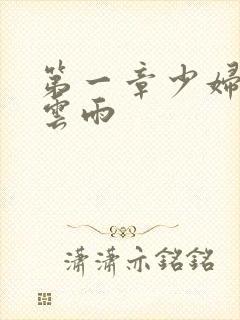 第一章少婦
雲雨
瀟瀟亦銘銘